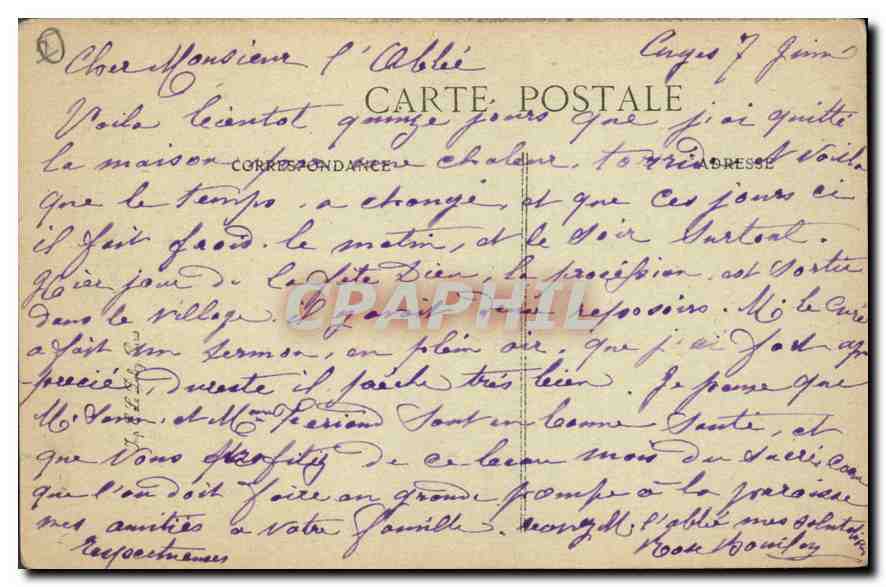 Cher Monsieur l'Abbé
Cuges 7 Juin
CARTE POSTALE
Voila bientot quinze jours que j'ai quitté
la maison par une chaleur torride et voila
CORRESPONDANCE
ADRESSE
que le temps a changé, et que ces jours ci
il fait froid le matin, et le soir surtout.
Hier jour de la fête Dieu, la procession est sortie
dans le village. Il y avait deux reposoirs. M. le Curé
CPAPHIL
a fait un sermon, en plein air, que j'ai fort ap
precié, dureste il prêche très bien. Je pense que
M. et Mme sont en bonne santé, et
que vous profitez de ce beau mois du Sacré Coeur
que l'on doit faire en grande pompe à la paroisse
mes amitiés a votre famille. M. l'abbé mes salutations
respectueuses
Rose